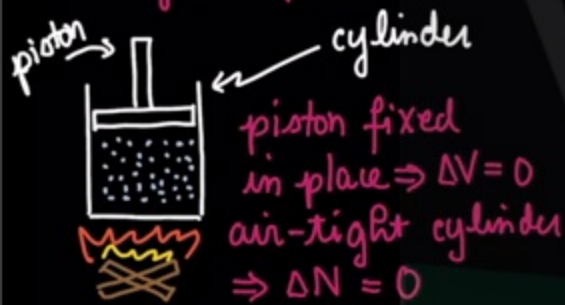 piston
cylinder
piston fixed
in place ⇒ ΔV = 0
air-tight cylinder
⇒ ΔN = 0